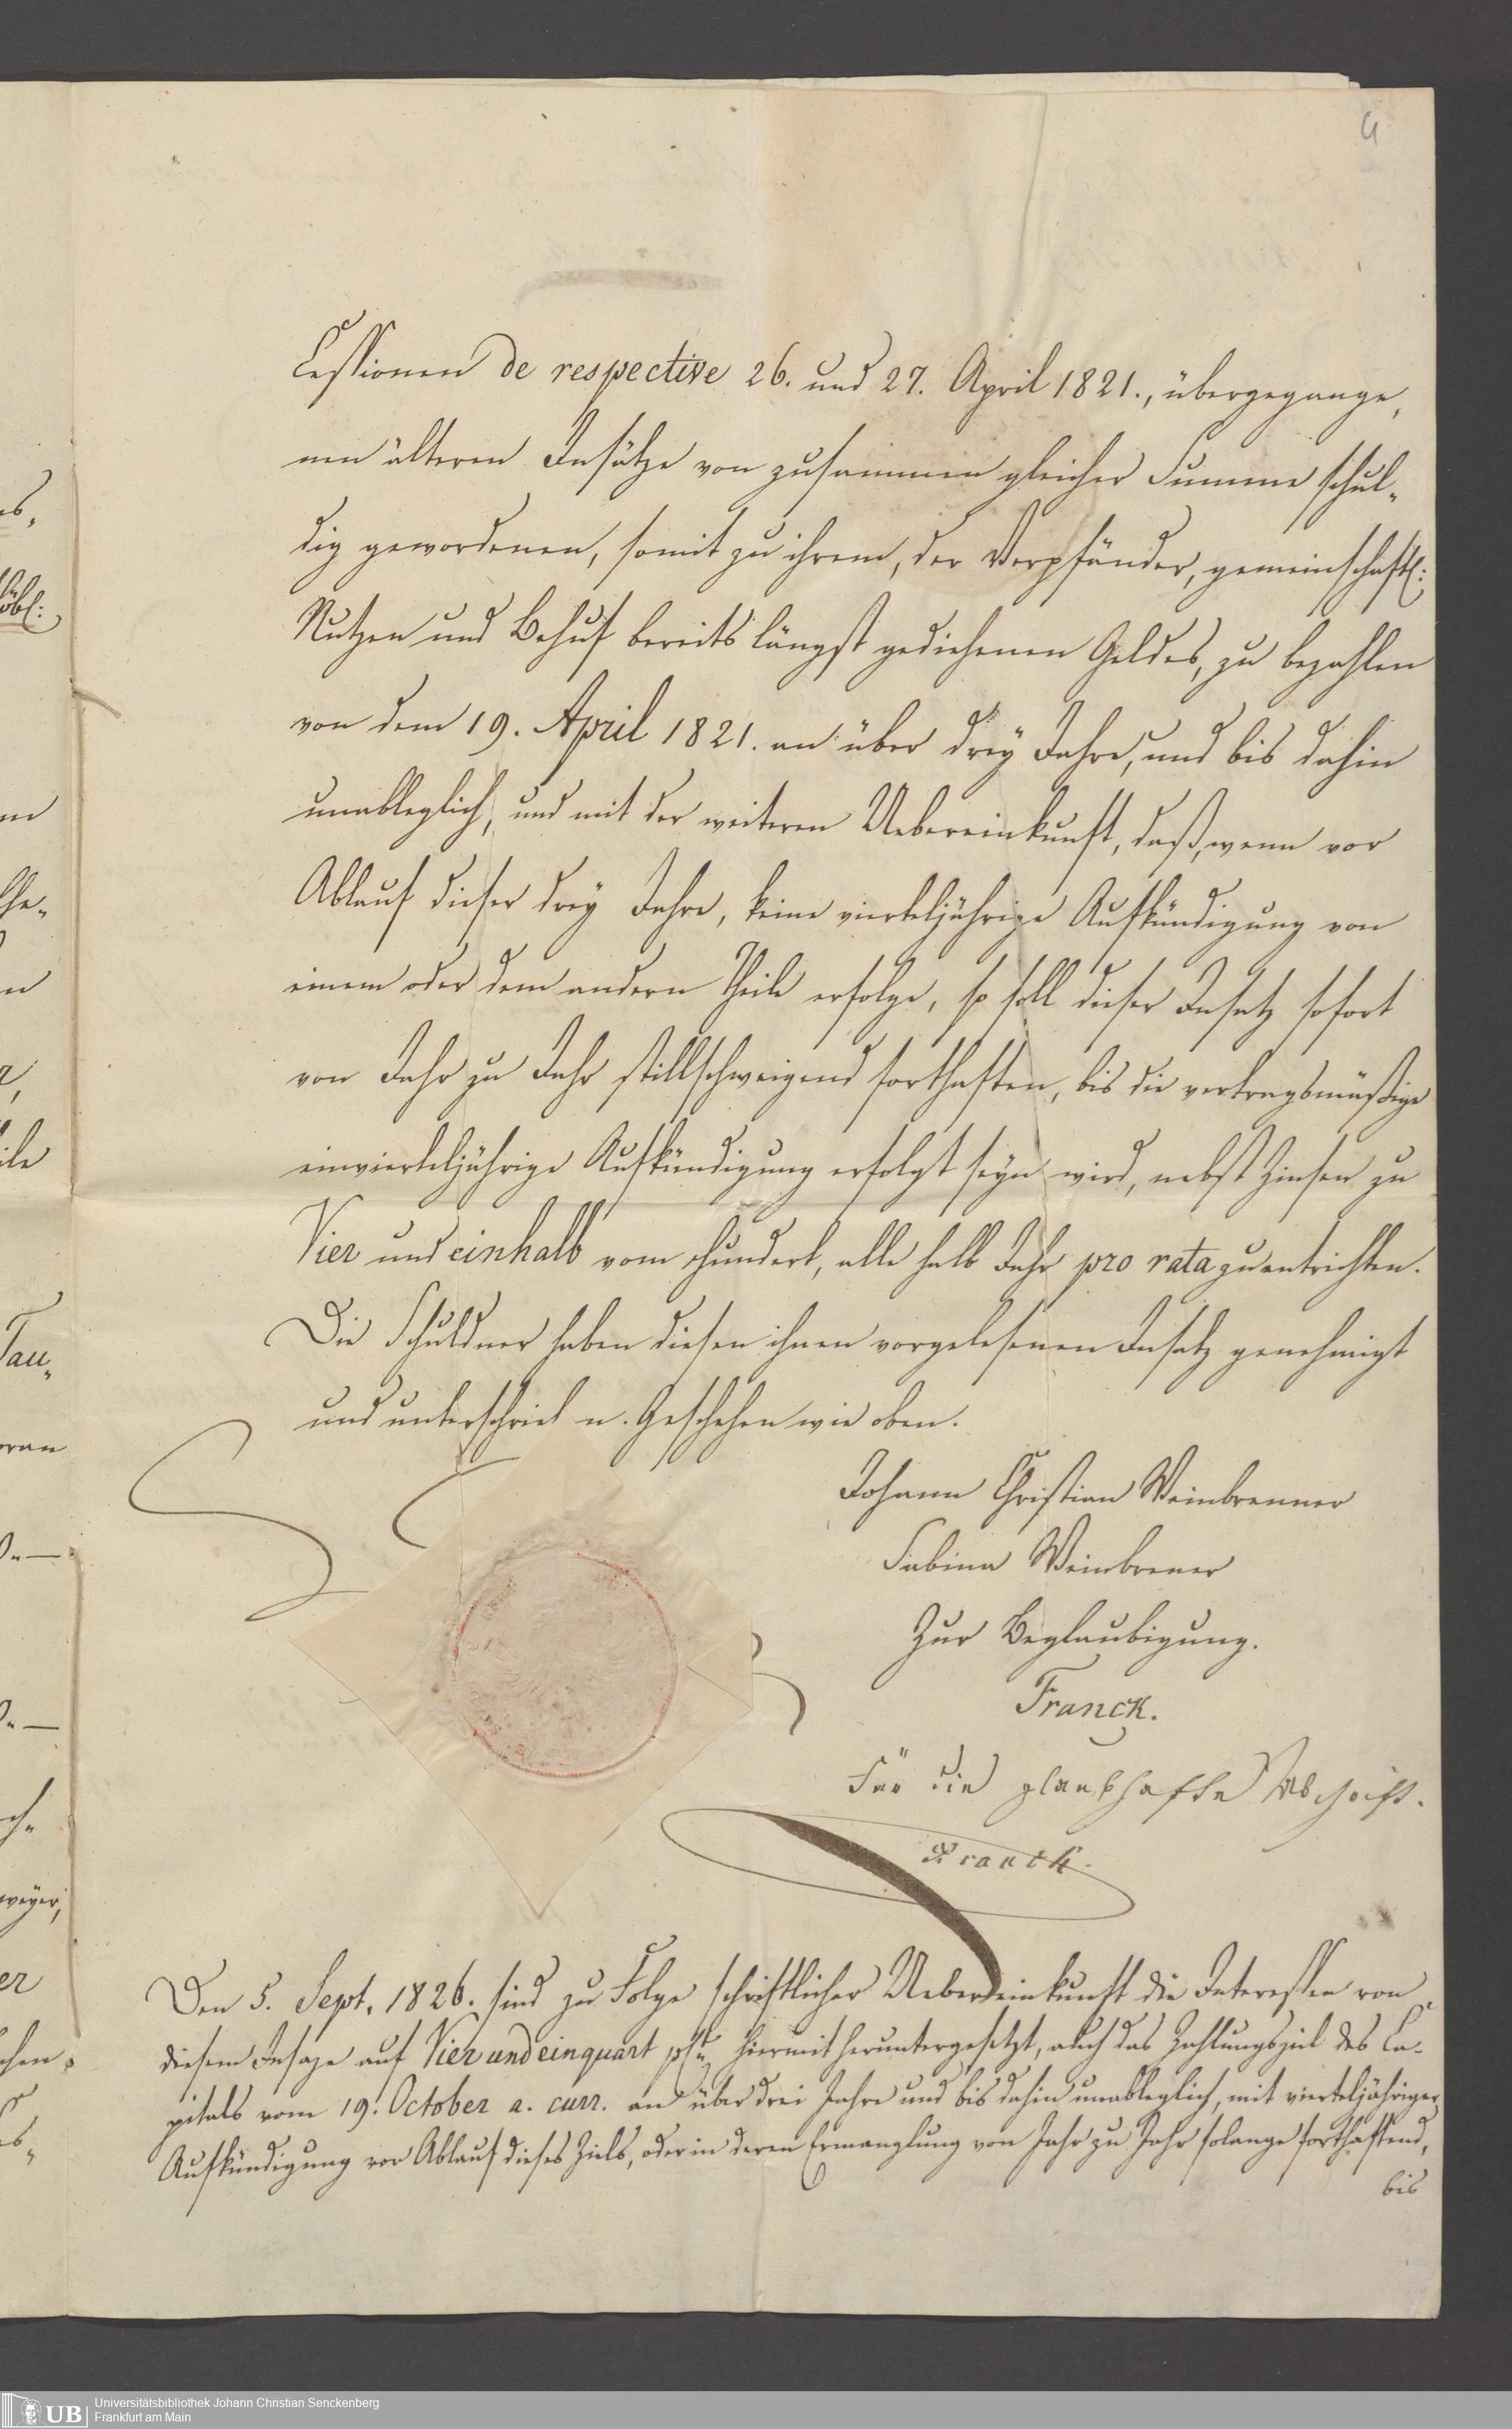 4
Cessionen de respective 26. und 27. April 1821., übergegange„
nen älteren Insätze von zusammen gleicher Summe schul„
dig gewordenen, somit zu ihrem, der Verpfänder, gemeinschaftl:
Nutzen und Behuf bereits längst gediehenen Geldes, zu bezahlen
von dem 19. April 1821. an über drey Jahre, und bis dahin
unableglich, und mit der weiteren Uebereinkunft, daß, wenn vor
Ablauf dieser drey Jahre, keine vierteljährige Aufkündigung von
einem oder dem andern Theile erfolge, so soll dieser Insatz sofort
von Jahr zu Jahr stillschweigend forthaften, bis die vertragsmäßige
einvierteljährige Aufkündigung erfolgt seyn wird, nebst Zinsen zu
Vier und einhalb vom Hundert, alle halb Jahr pro rata zu entrichten.
Die Schuldner haben diesen ihnen vorgelesenen Insatz genehmigt
und unterschrieb n. Geschehen wie oben.
Johann Christian Weinbrenner
Sabina Weinbrener
Zur Beglaubigung.
Franck.
Für die glaubhafte Abschrift.
Franck.
Den 5. Sept. 1826. sind zu Folge schriftlicher Uebereinkunft die Interessen von
diesem Insaze auf Vier und einquart hiermit heruntergesetzt, auch das Zahlungsziel des Ca„
pitals vom 19. October a. curr. an über drei Jahre und bis dahin unableglich, mit vierteljähriger
Aufkündigung vor Ablauf dieses Ziels, oder in deren Ermanglung von Jahr zu Jahr solange forthaftend,
bis
UB
Universitätsbibliothek Johann Christian Senckenberg
Frankfurt am Main